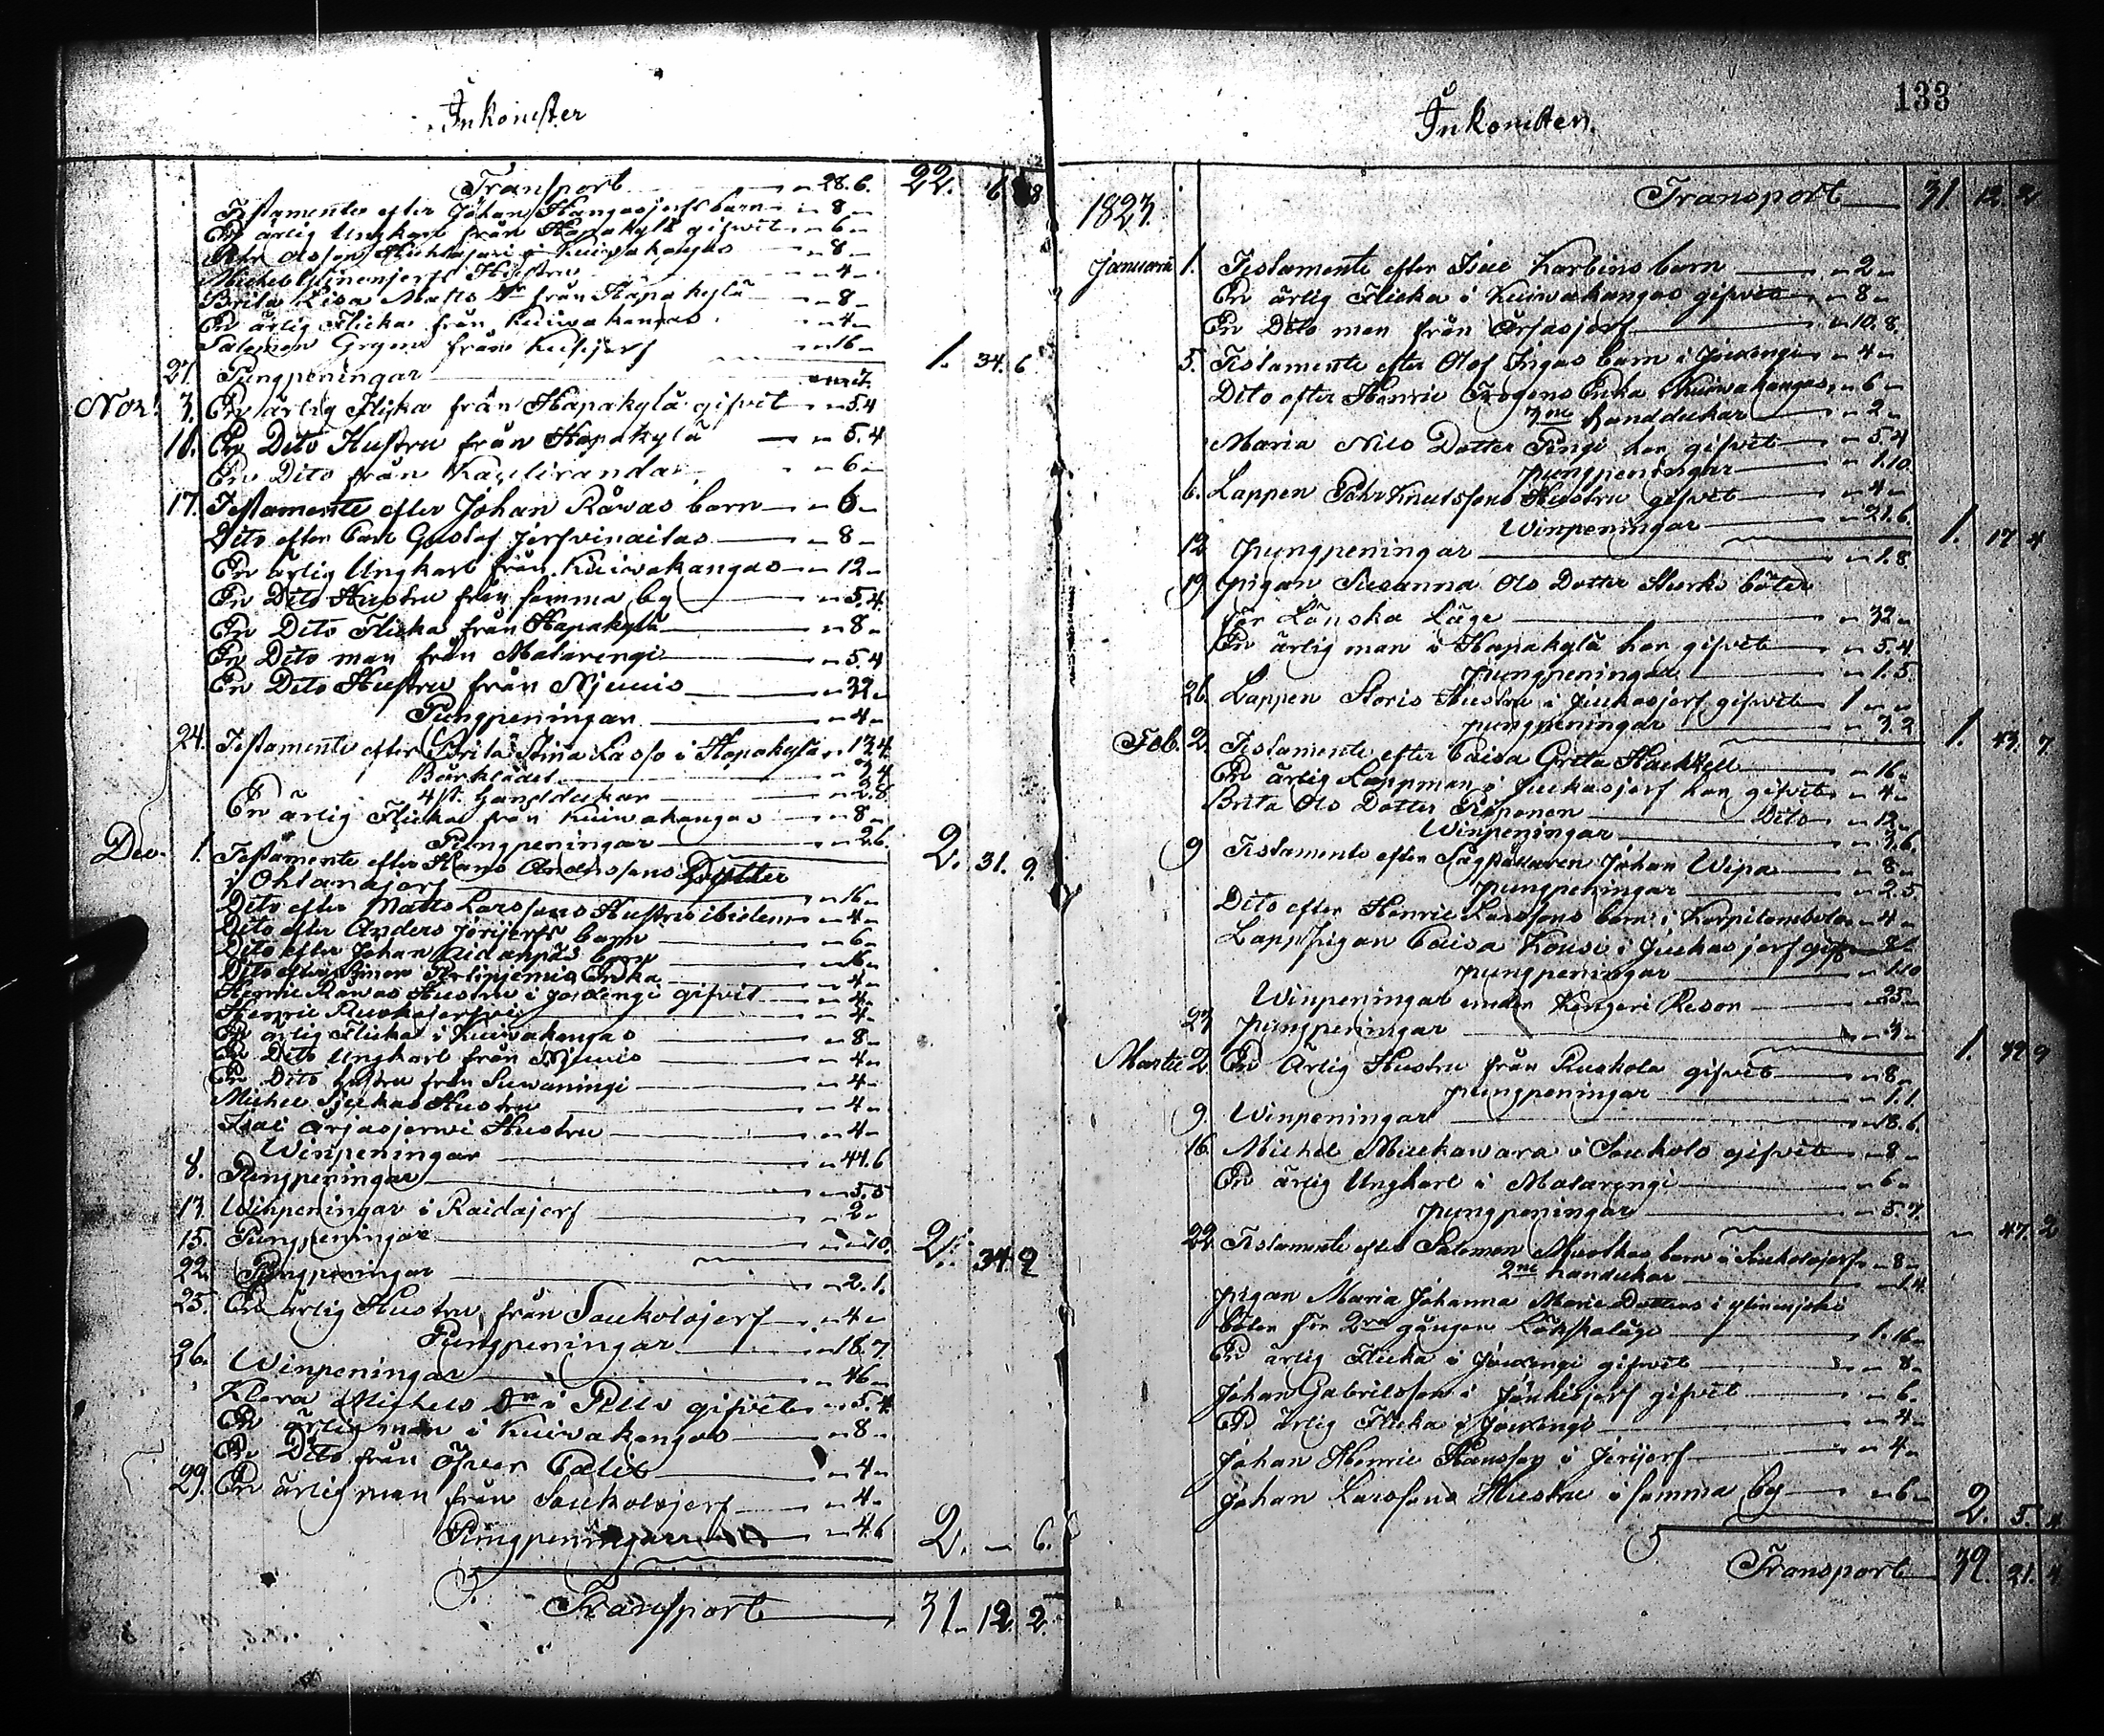 Inkomster
Transport — 28.6. 22. 6 8
Testamente efter Johan Kangasjerfs barn — 8 —
En ärlig Ungkarl från Hapakylä gifvit — 6 —
Kuivakangas — 8 —
Hustru — 4 —
Brita Lisa Matts Dr från Hapakylä — 8 —
En ärlig Flicka från Kuivakangas — 4 —
Salomon från — 16 —
27. Pungpeningar 1. 34. 6
Nov. 3. En ärlig Flicka från Hapakylä gifvit — 5.4
10. En Dito Hustru från Hapakylä — 5.4
En Dito från Kauliranda — 6 —
17. Testamente efter Johan Råvas barn — 6 —
Dito efter Carl Gustaf — 8 —
En ärlig Ungkarl från Kuivakangas — 12 —
En Dito Hustru från samma by — 5.4.
En Dito Flicka från Hapakylä — 8 —
En Dito man från Matarengi — 5.4
En Dito Hustru från Njemis — 32 —
Pungpeningar — 4 —
24. Testamente efter Brita Stina Lasso i Hapakylä 13.4.
Bårklädet
4 st. handdukar — 2.8.
En ärlig Flicka från Kuivakangas — 8 —
Pungpeningar — 2.6. 2. 31. 9.
Dec. 1. Testamente efter Hans Anderssons Dotter
i Ohtanajerf — 16 —
Dito efter Matts Larssons Hustru ibidem — 4 —
Dito efter Anders Jerijerfs barn — 6 —
Dito efter Johan barn — 6 —
Dito efter Simon Enka — 4 —
Henric Råvas Hustru i Jouxengi gifvit — 4 —
Henric — 4 —
En ärlig Flicka i Kuivakangas — 8 —
En Dito Ungkarl från Njemis — 4 —
En Dito Hustru från — 4 —
Michel Hustru — 4 —
Isac Hustru — 4 —
Winpeningar — 44.6
8. Pungpeningar — 5.5
13. Winpeningar i Raidajerf — 2 —
15. Pungpeningar — 10. 2. 34. 2
22. Pungpeningar — 2.1.
25. En ärlig Hustru från Soukolojerf — 4 —
Pungpeningar — 18.7
26. Winpeningar — 46 —
Klara Michels Dr i Pello gifvit — 5.4.
En ärlig man i Kuivakangas — 8 —
En Dito från öfver — 4 —
29. En ärlig man från Soukolojerf — 4 —
Pungpeningar — 4.6 2. — 6.
Transport — 31. 12. 2.
133
Inkomster.
1823. Transport — 31. 12. 2
Januarii 1. Testamente efter Isac Karbins barn — 2 —
En ärlig Flicka i Kuivakangas gifvit — 8 —
En Dito man från — 10.8.
5. Testamente efter Olof Ingas barn i Jouxengi — 4 —
Dito efter Henric Enka i Kuivakangas — 6 —
3ne handdukar — 2 —
Maria Nils Dotter har gifvit — 5.4
pungpeningar — 1.10
6. Lappen Pehr Knutssons Hustru gifvit — 4 —
Winpeningar — 21.6. 1. 17 4
12 pungpeningar — 1.8.
19 pigan Susanna Ols Dotter böter
för Lönska Läge — 32 —
En ärlig man i Hapakylä har gifvit — 5.4
pungpeningar — 1.5.
26. Lappen Hustru i Juckasjerf gifvit 1 — —
pungpeningar — 3.2 1. 43. 7.
Feb. 2. Testamente efter Caisa Greta — 16 —
En ärlig Lappman i Juckasjerf har gifvit — 4 —
Brita Ols Dotter Dito — 12 —
Winpeningar — 3.6.
9 Testamente efter Johan Wipa — 8 —
pungpeningar — 2.5.
Dito efter Henric Larssons barn i Korpilombolo — 4 —
Lapp pigan Caisa i Juckasjerf — 8 —
pungpeningar — 1.10
Winpeningar under Kengeri Reson — 25 —
23 pungpeningar — 3 — 1. 39 9
Martii 2 En Ärlig Hustru från Ruskola gifvit — 8 —
pungpeningar — 1.1.
9. Winpeningar — 18.6.
16. Michel i Soukolo gifvit — 8 —
En ärlig Ungkarl i Matarengi — 6 —
pungpeningar — 5.7. — 47. 2
22 Testamente efter Salomon barn i Soukolojerf — 8 —
2ne handdukar — 1.4.
pigan Maria Johanna Dotters i
böter för 2ra gången — 1. 16 —
En ärlig Flicka i Jouxengi gifvit — 8 —
Johan Gabrielsson i gifvit — 6.
En ärlig Flicka i Jouxengi — 4 —
Johan Henric Hansson i Jerijerf — 4 —
Johan Larssons Hustru i samma by — 6 — 2. 5. 4
Transport — 39. 21. 4